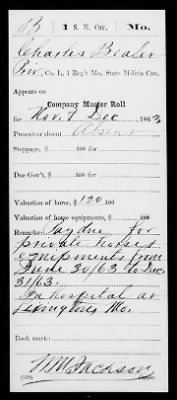 B | 1 S. M. Cav. | Mo.
Charles Bealer
Priv., Co. L, 1 Reg't Mo. State Militia Cav.
Appears on
Company Muster Roll
for Nov. & Dec, 1863.
Present or absent Absent
Stoppage, $ 100 for
Due Gov't, $ 100 for
Valuation of horse, $ 120 100
Valuation of horse equipments, $ 100
Remarks: Pay due for
private horse &
equipments from
June 30/63 to Dec.
31/63.
In hospital at
Lexington Mo.
Book mark:
W M Jackson
Copyist.